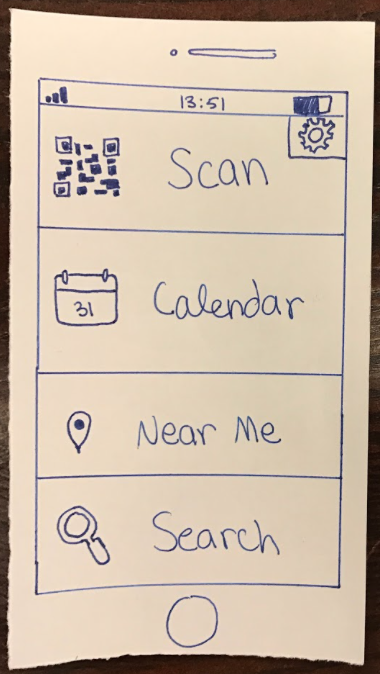 13:51
Scan
31
Calendar
Near Me
Search